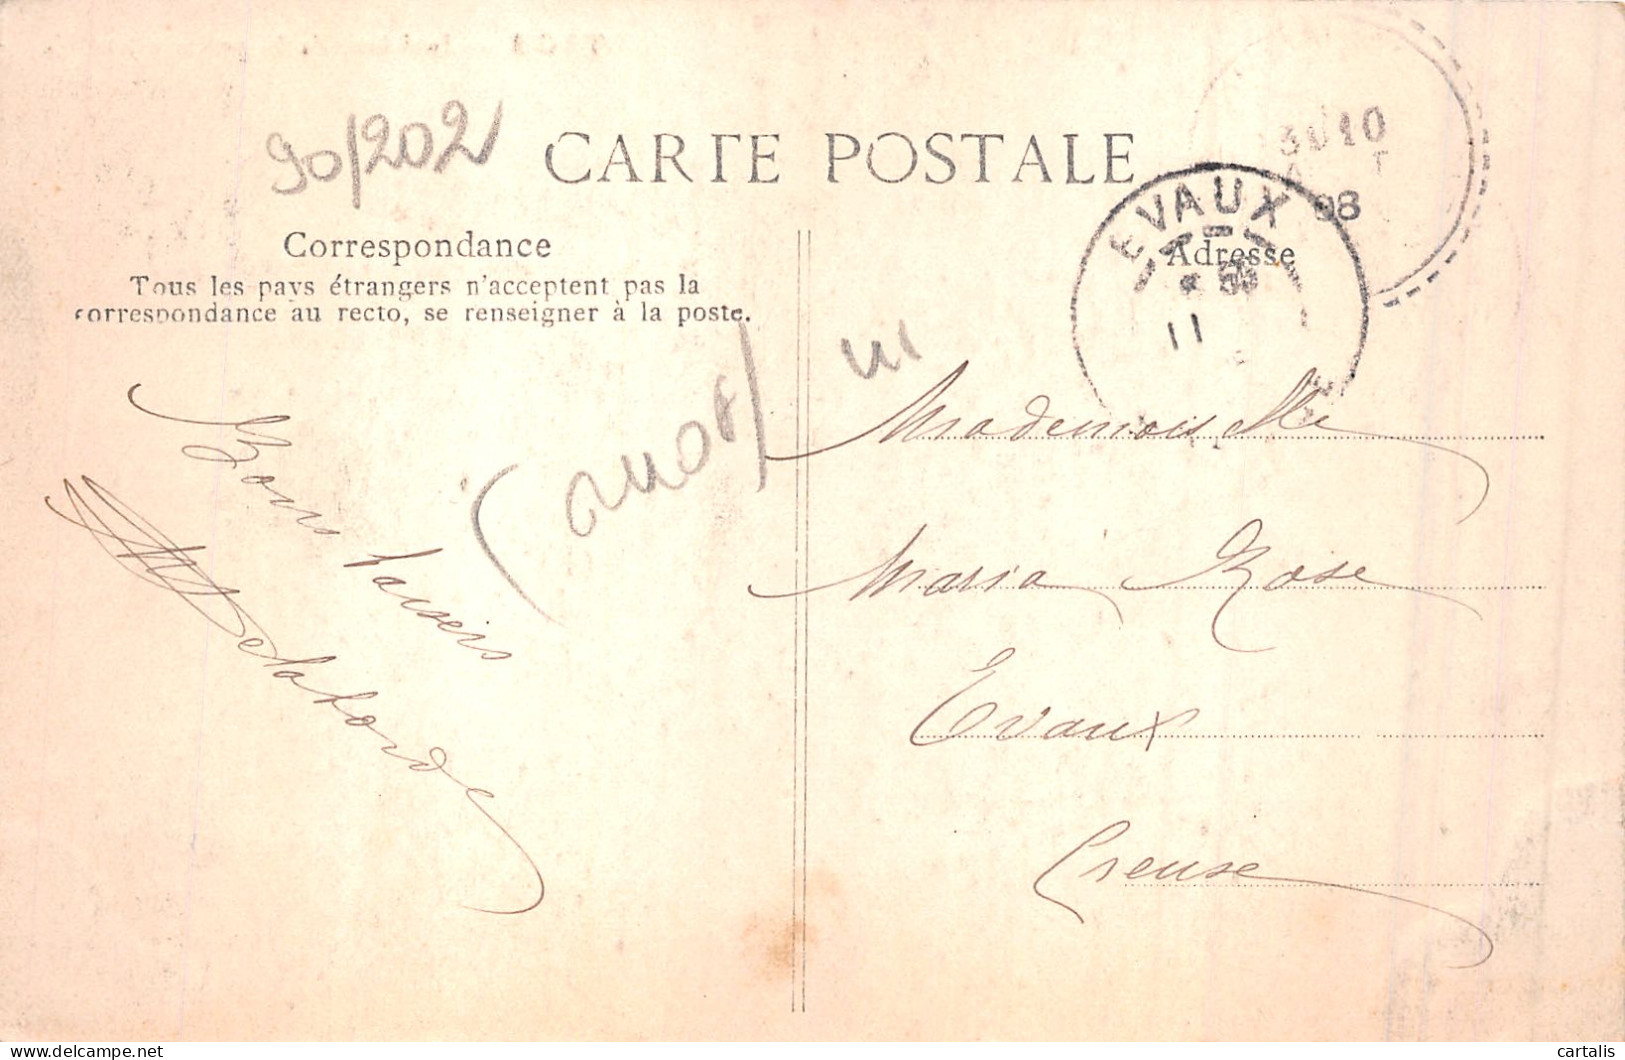 90/202
CARTE POSTALE
Correspondance
Tous les pays étrangers n'acceptent pas la
correspondance au recto, se renseigner à la poste.
Bons baisers
Delaborde
EVAUX
11
10
08
Adresse
Mademoiselle
Maria Rose
Evaux
Creuse
delcampe.net
cartalis